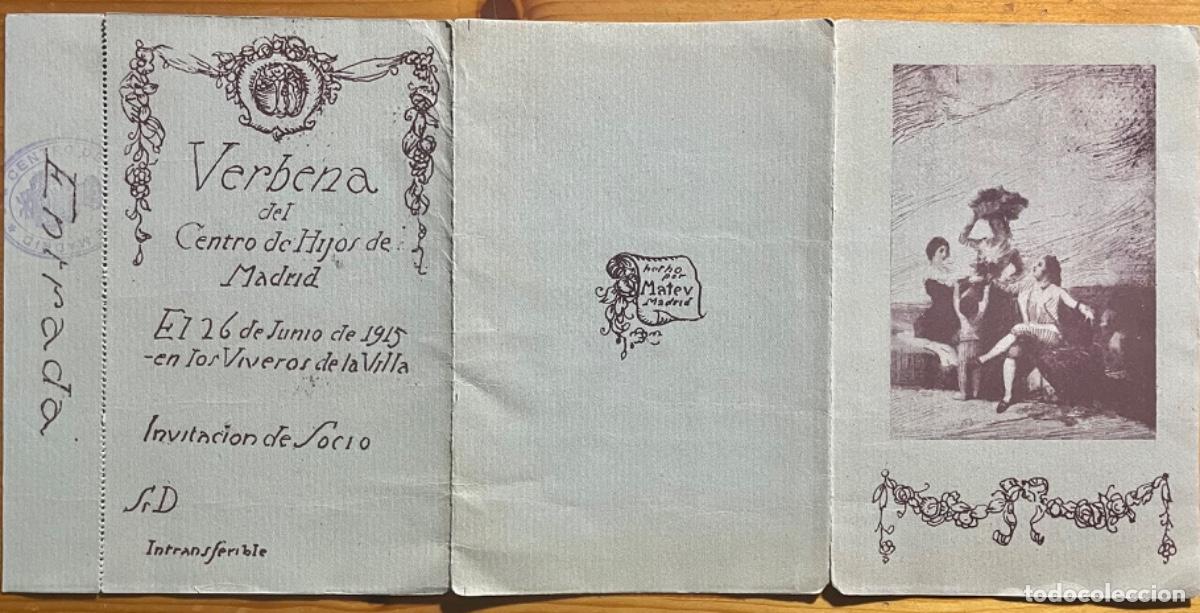 Entrada
CENTRO DE
MADRID
Verbena
del
Centro de Hijos de
Madrid
El 26 de Junio de 1915
-en los Viveros de la Villa
Invitacion de Socio
Sr D
Intransferible
hecho
por
Mateu
Madrid
todocoleccion